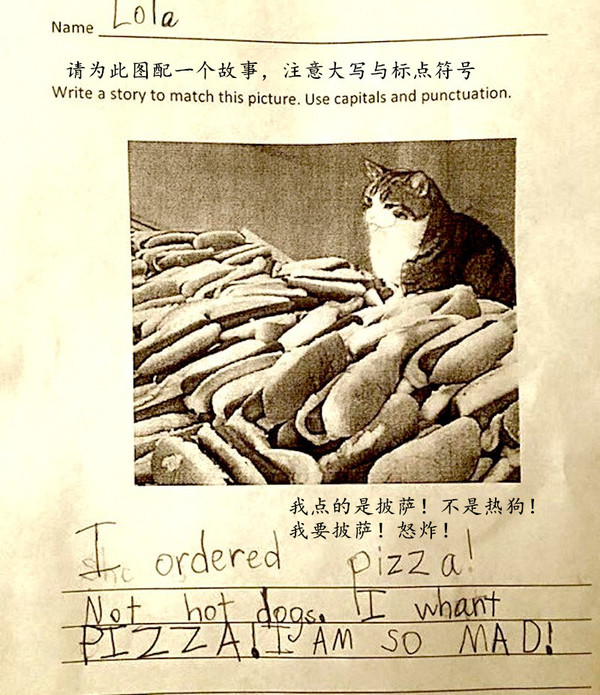 Name Lola
请为此图配一个故事，注意大写与标点符号
Write a story to match this picture. Use capitals and punctuation.
我点的是披萨！不是热狗！
我要披萨！怒炸！
I ordered pizza!
Not hot dogs. I whant
PIZZA! I AM SO MAD!